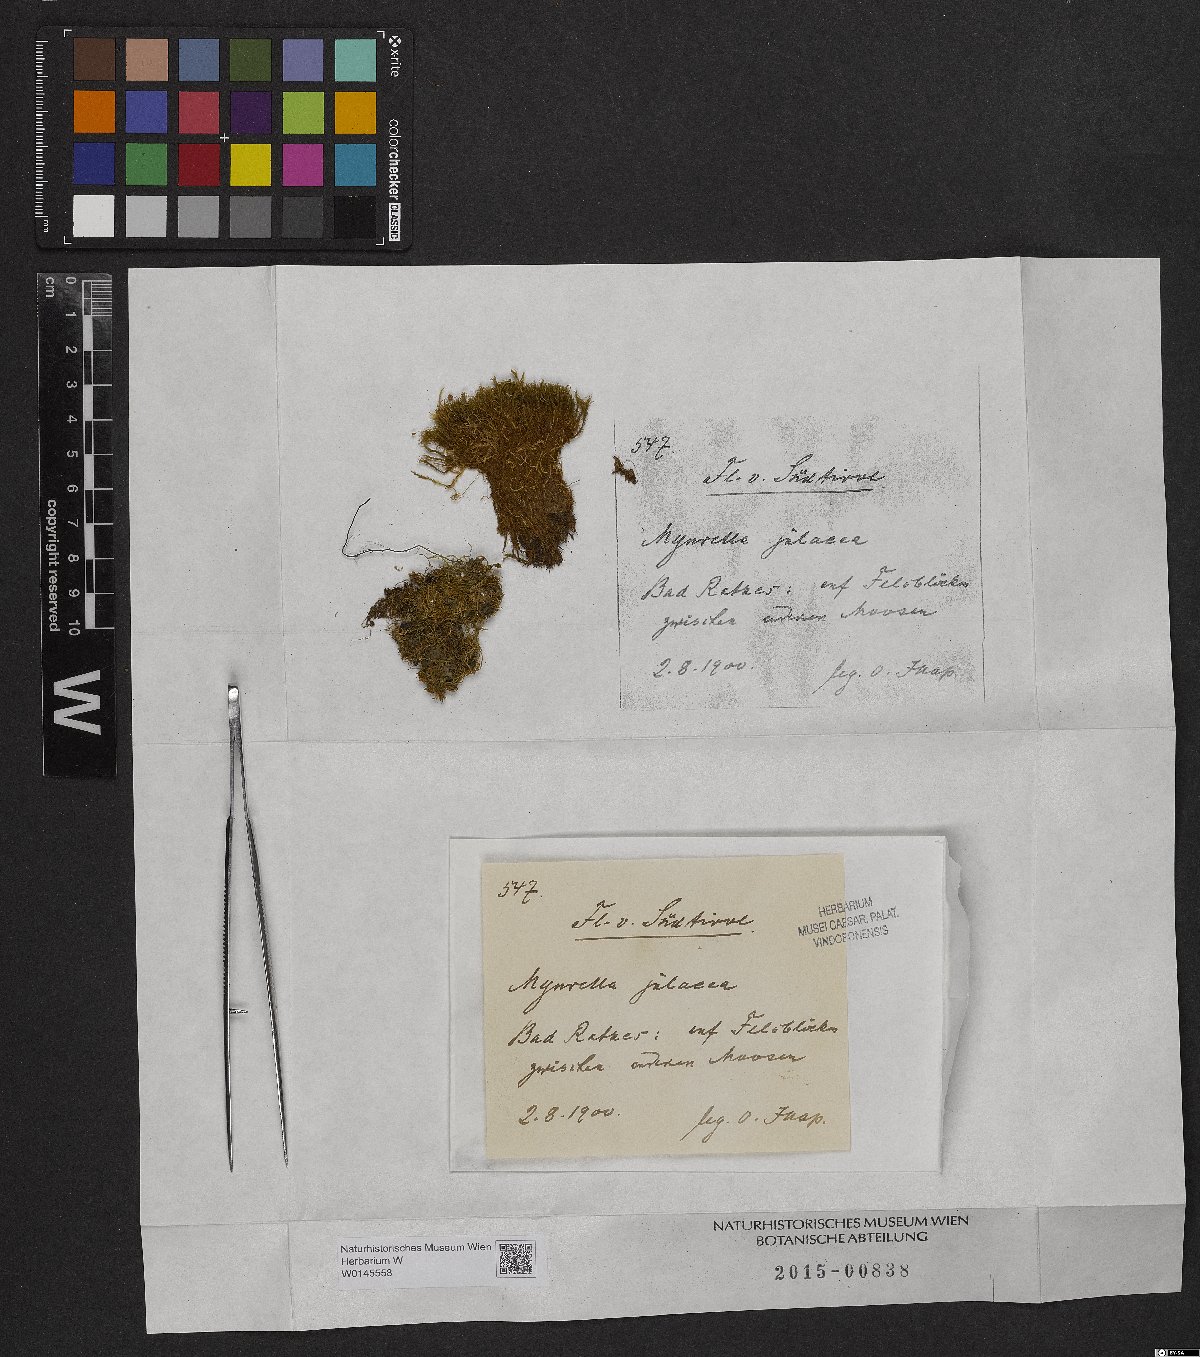 x-rite
colorchecker CLASSIC
mm
cm
0 1 2 3 4 5 6 7 8 9 10
copyright reserved
W
547.
Fl. v. Südtirol
Myurella julacea
Bad Ratzes: auf Felsblöcken
zwischen anderen Moosen
2.8.1900. leg. O. Jaap.
547.
Fl. v. Südtirol.
Myurella julacea
Bad Ratzes: auf Felsblöcken
zwischen anderen Moosen
2.8.1900. leg. O. Jaap.
HERBARIUM
MUSEI CAESAR. PALAT.
VINDOBONENSIS
NATURHISTORISCHES MUSEUM WIEN
BOTANISCHE ABTEILUNG
2015-00838
Naturhistorisches Museum Wien
Herbarium W
W0145558
BY-SA